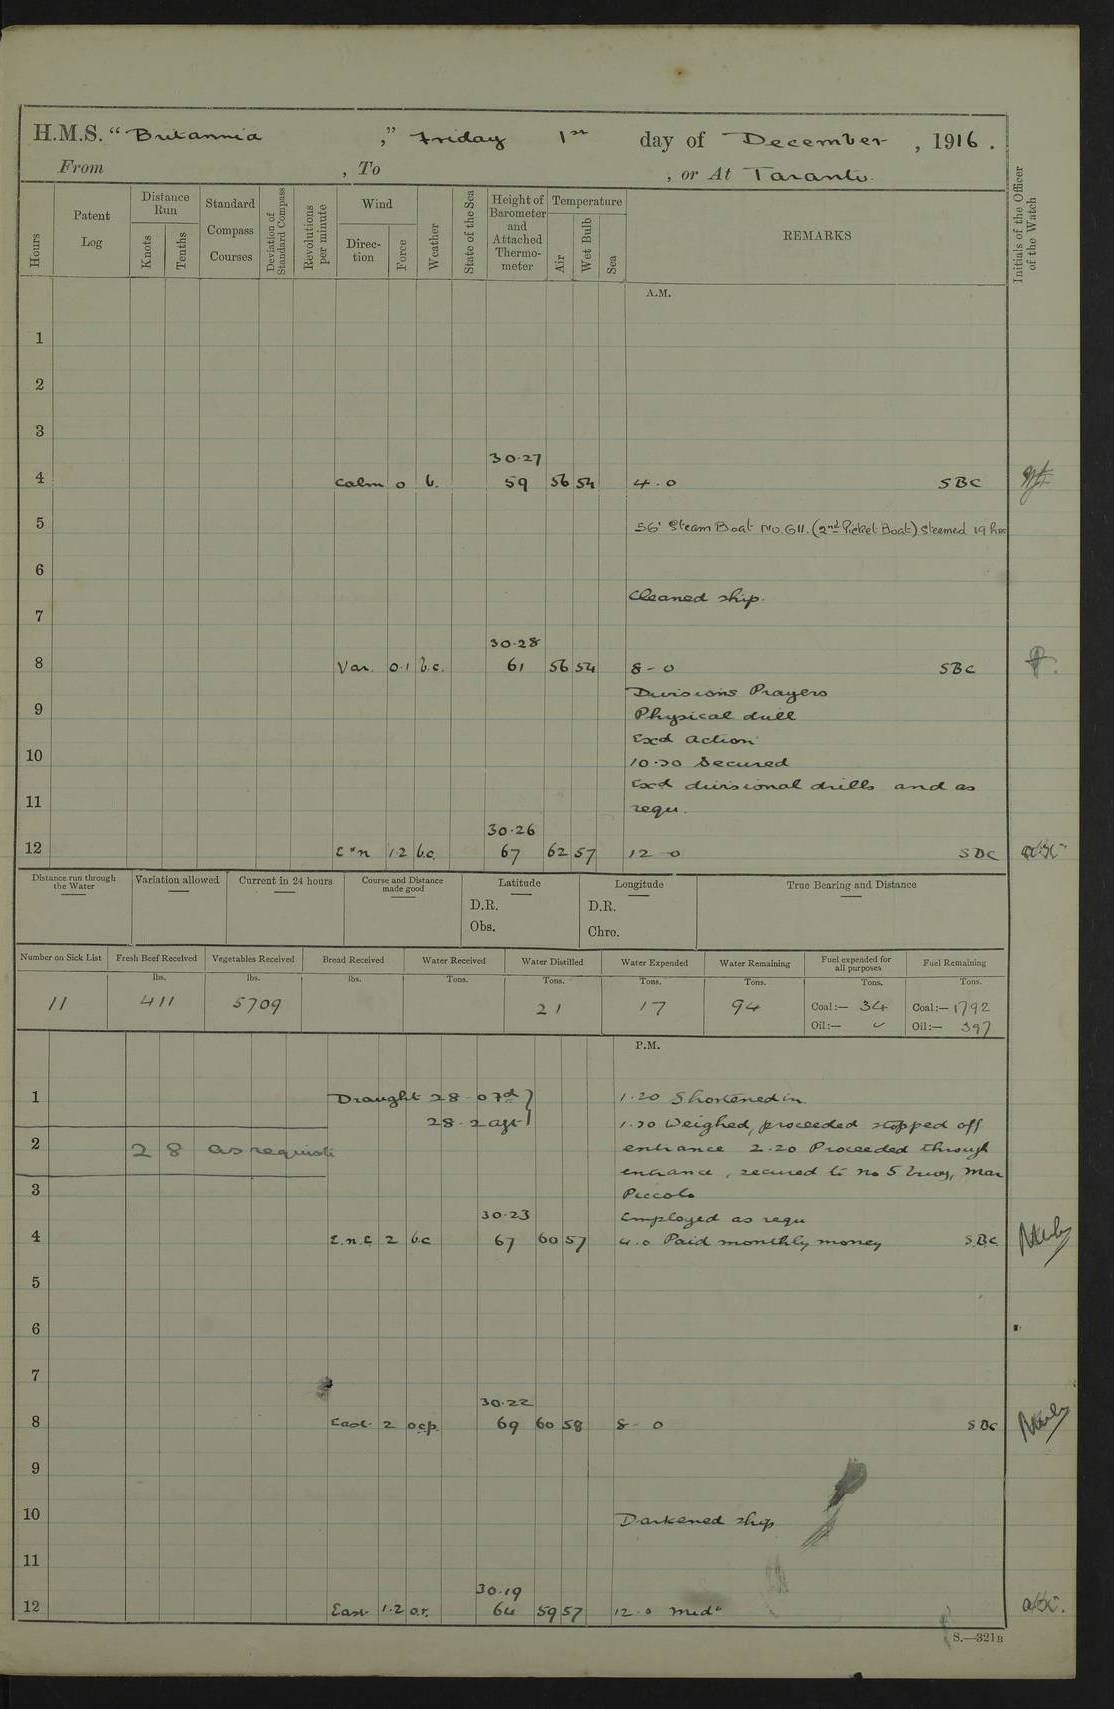 H.M.S. "Britannia," Friday 1st day of December, 1916.
From , To , or At Taranto.
Hours
Patent Log
Distance Run
Knots
Tenths
Standard Compass Courses
Deviation of Standard Compass
Revolutions per minute
Wind
Direction
Force
Weather
State of the Sea
Height of Barometer and Attached Thermometer
Temperature
Air
Wet Bulb
Sea
REMARKS
Initials of the Officer of the Watch
A.M.
1
2
3
30.27
4 Calm 0 b. 59 56 54 4.0 SBC
5 56' Steam Boat No. 611. (2nd Picket Boat) Steamed 19 hrs
6
Cleaned ship.
7
30.28
8 Var. 0.1 b.c. 61 56 54 8-0 SBC
Divisions Prayers
9 Physical drill
Exd action
10 10.30 Secured
Exd divisional drills and as
11 requ.
30.26
12 E'n 1.2 b.c. 67 62 57 12 0 SBC
Distance run through the Water
Variation allowed
Current in 24 hours
Course and Distance made good
Latitude
D.R.
Obs.
Longitude
D.R.
Chro.
True Bearing and Distance
Number on Sick List Fresh Beef Received Vegetables Received Bread Received Water Received Water Distilled Water Expended Water Remaining Fuel expended for all purposes Fuel Remaining
lbs. lbs. lbs. Tons. Tons. Tons. Tons. Tons. Tons.
11 411 5709 21 17 94 Coal:— 34 Coal:— 1792
Oil:— Oil:— 397
P.M.
1 Draught 28-07d 1.20 Shortened in
28.2 aft 1.30 Weighed, proceeded stopped off
2 28 as requisite entrance 2.20 Proceeded through
entrance, secured to No 5 buoy, Mar
3 Piccolo
30.23 Employed as requ
4 E.n.E 2 bc 67 60 57 4.0 Paid monthly money SBC
5
6
7
30.22
8 East 2 ocp. 69 60 58 8-0 SBC
9
10 Darkened ship
11
30.19
12 East 1.2 o.r. 64 59 57 12.0 midt
S.—321B